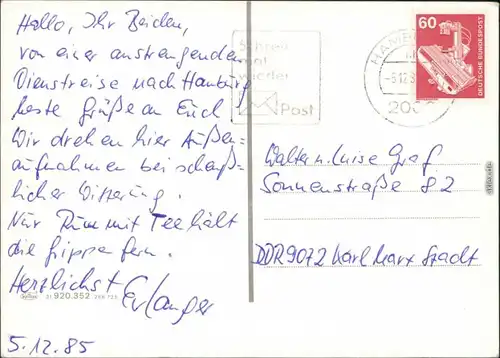 Hallo, Ihr Beiden,
von einer anstrengenden
Dienstreise nach Hamburg
beste Grüße an Euch
Wir drehen hier Außen-
aufnahmen bei scheuß-
licher Witterung.
Nur Rum mit Tee hält
die Grippe fern.
Herzlichst
Erlanger
5.12.85
31 920.352
Schreib
mal
wieder
Post
HAMB
60
DEUTSCHE BUNDESPOST
Walter u. Luise Graf
Sonnenstraße 82
DDR 9072 Karl Marx Stadt